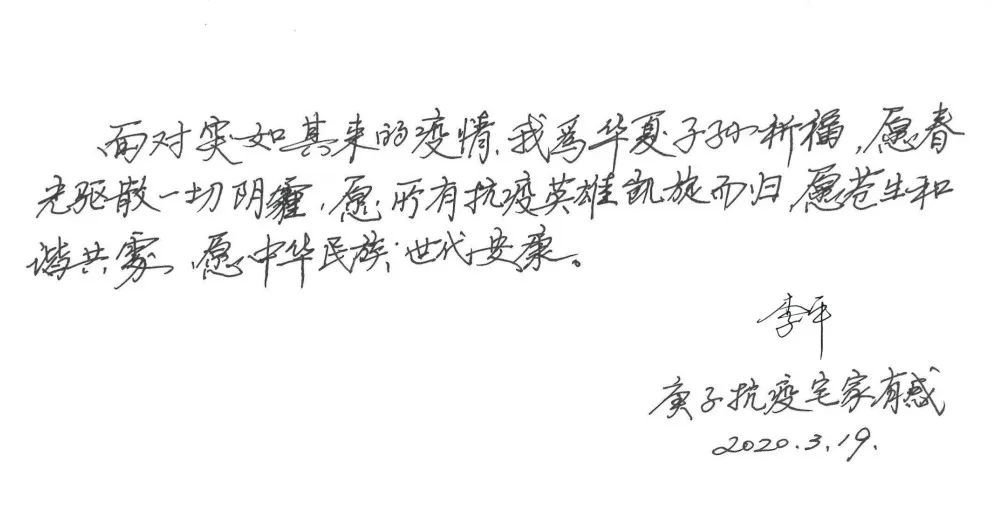 面对突如其来的疫情，我为华夏子孙祈福，愿春
光驱散一切阴霾，愿所有抗疫英雄凯旋而归，愿苍生和
谐共处，愿中华民族世代安康。
李平
庚子抗疫宅家有感
2020.3.19.